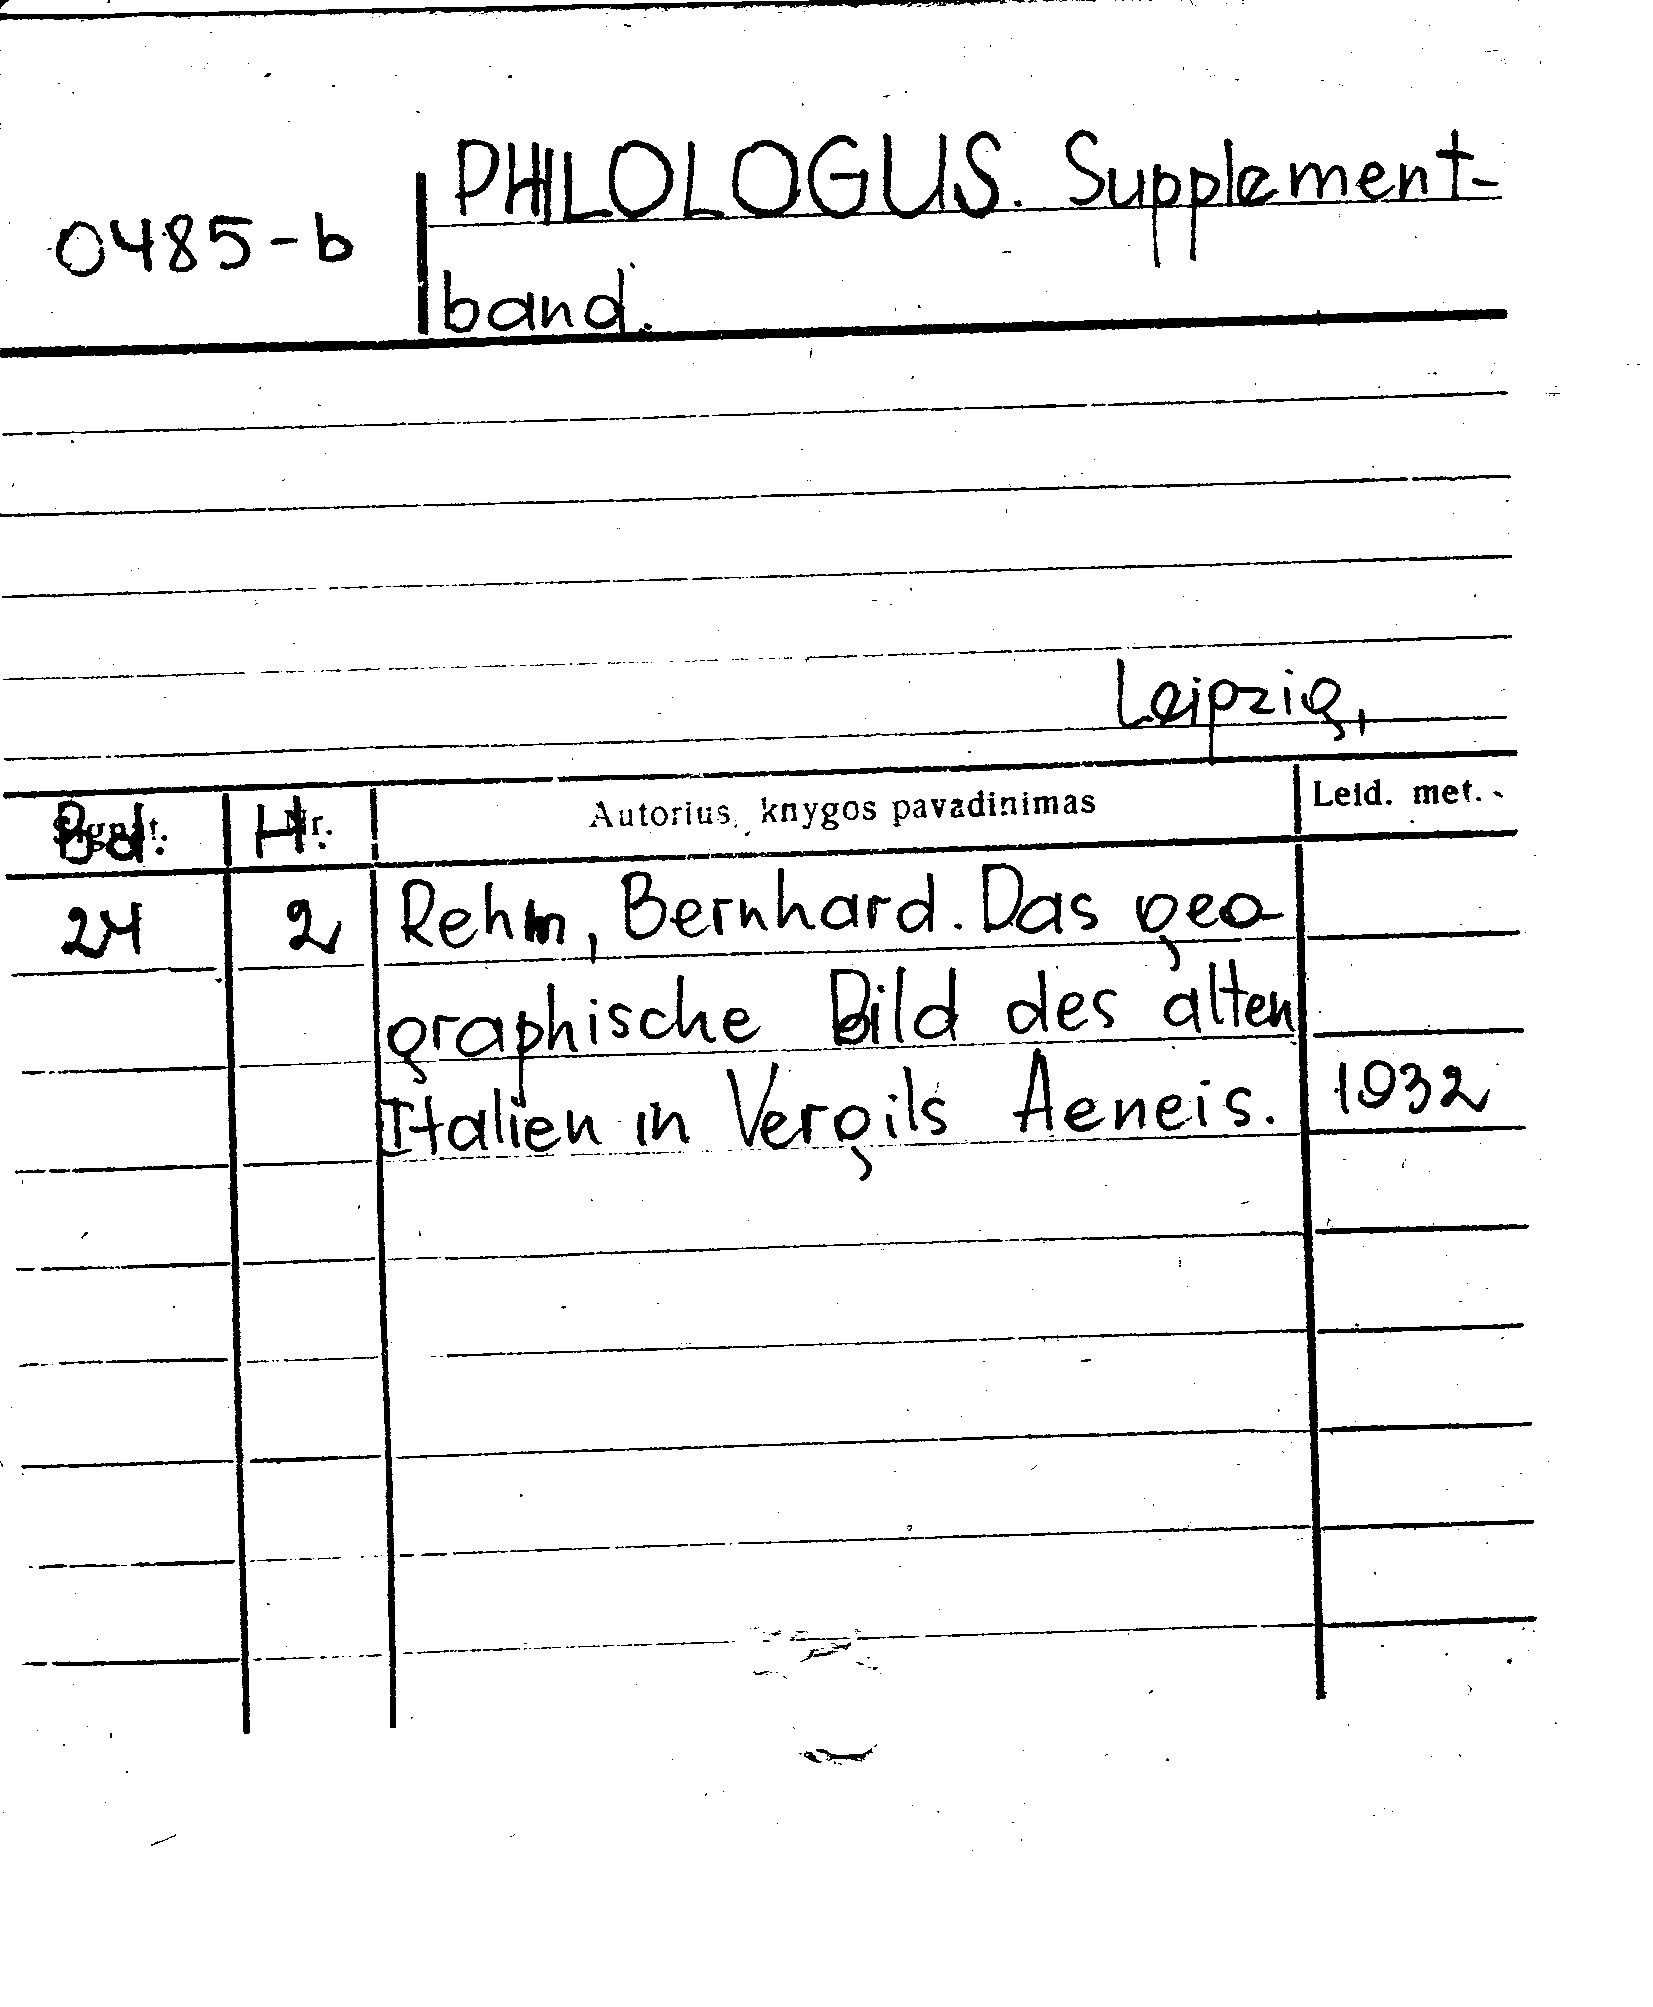 PHILOLOGUS. Supplement-
0485-b
band.
Leipzig,
Bd. H. Autorius, knygos pavadinimas Leid. met.
24 2 Rehm, Bernhard. Das geo-
graphische Bild des alten
Italien in Vergils Aeneis. 1932